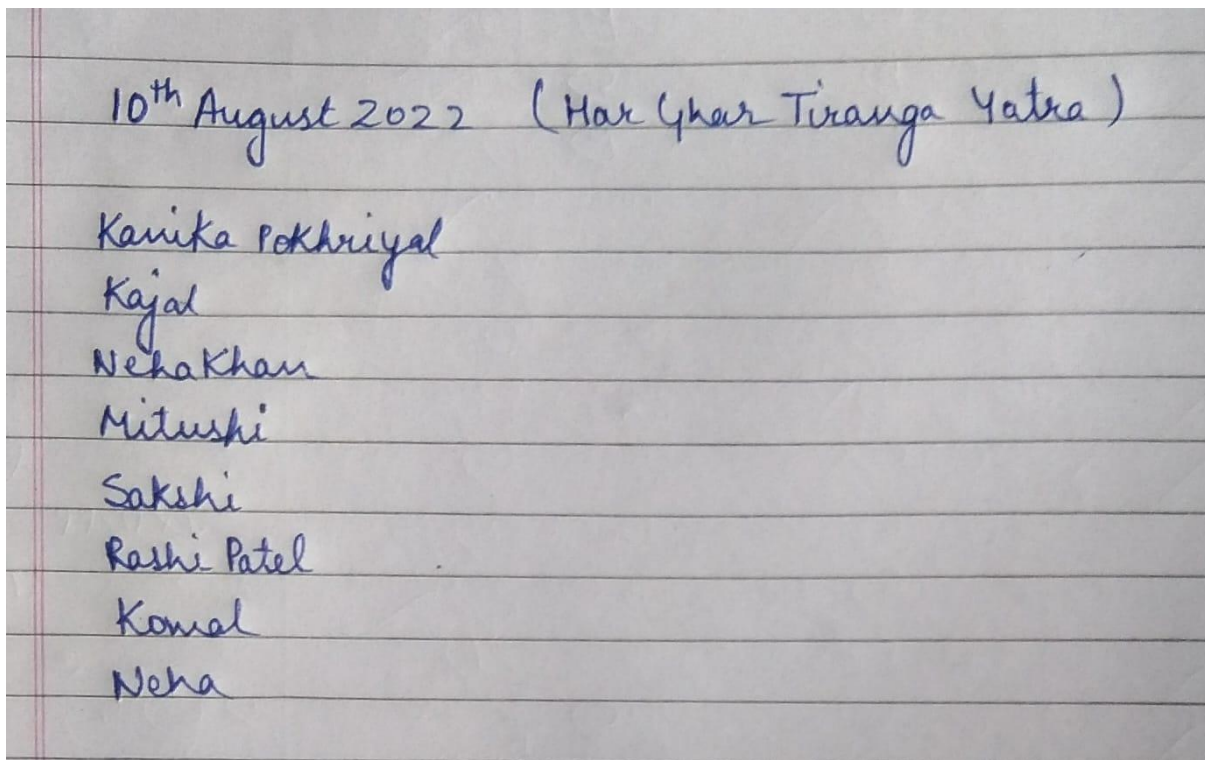 10th August 2022 (Har Ghar Tiranga Yatra)
Kanika Pokhriyal
Kajal
Neha Khan
Mitushi
Sakshi
Rashi Patel
Komal
Neha